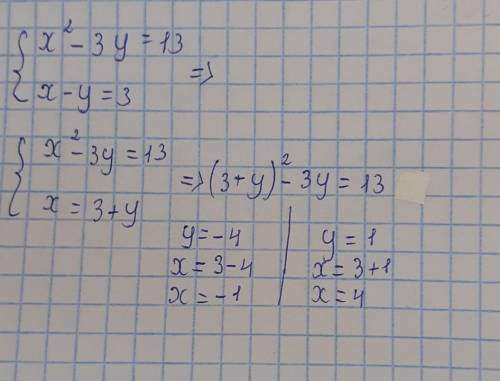 x² - 3y = 13
x - y = 3 =>
x² - 3y = 13
x = 3 + y => (3 + y)² - 3y = 13
y = -4
x = 3 - 4
x = -1
y = 1
x = 3 + 1
x = 4